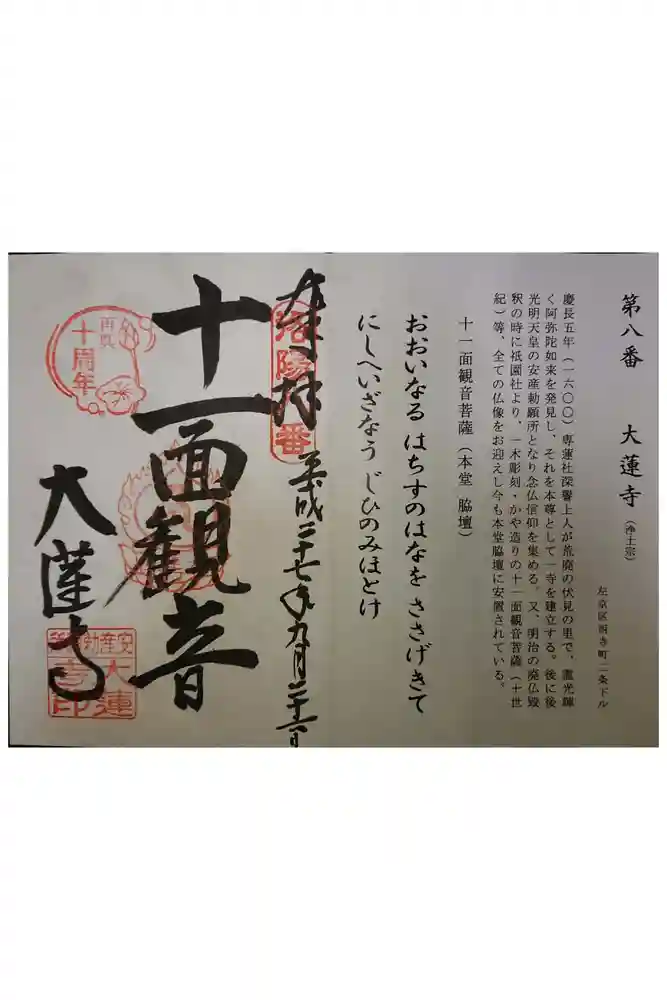 第八番　大蓮寺（浄土宗）
左京区西寺町二条下ル
慶長五年（一六〇〇）専蓮社深譽上人が荒廃の伏見の里で、霊光輝
く阿弥陀如来を発見し、それを本尊として一寺を建立する。後に後
光明天皇の安産勅願所となり念仏信仰を集める。又、明治の廃仏毀
釈の時に祇園社より、一木彫刻・かや造りの十一面観音菩薩（十世
紀）等、全ての仏像をお迎えし今も本堂脇壇に安置されている。
十一面観音菩薩（本堂　脇壇）
おおいなる はちすのはなを ささげきて
にしへいざなう じひのみほとけ
奉拝 平成二十七年九月二十一日
洛陽 番
十一面観音
再興
十周年
大蓮寺
安産勅願
大蓮
寺印